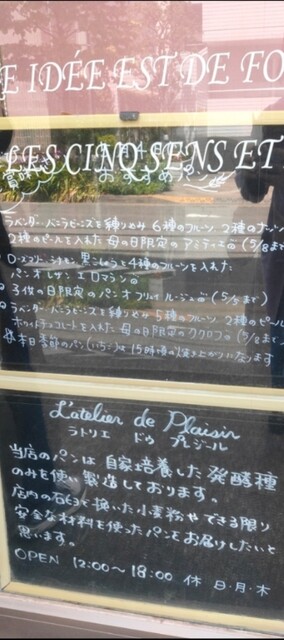 E IDÉE EST DE FO
LES CINQ SENS ET
おすすめパン
ラベンダー・バニラビーンズを練り込み 6種のフルーツ 2種のナッツ
2種のピールを入れた 母の日限定のアミティエ (5/8まで)
黒こしょうと4種のフルーツを入れた
パン オ レザン エロマラン
子供の日限定のパン オ フリュイ ルージュ (5/5まで)
ラベンダー・バニラビーンズを練り込み 5種のフルーツ 2種のピール
ホワイトチョコレートを入れた 母の日限定のククロフ (5/8まで)
本日季節のパン(いちご)は 15時頃の焼き上がりになります
L'atelier de Plaisir
ラトリエ ドゥ プレジール
当店のパンは 自家培養した発酵種
のみを使い製造しております。
店内の石臼で挽いた小麦粉やできる限り
安全な材料を使ったパンをお届けしたいと
思います。
OPEN 12:00〜18:00 休 日・月・木